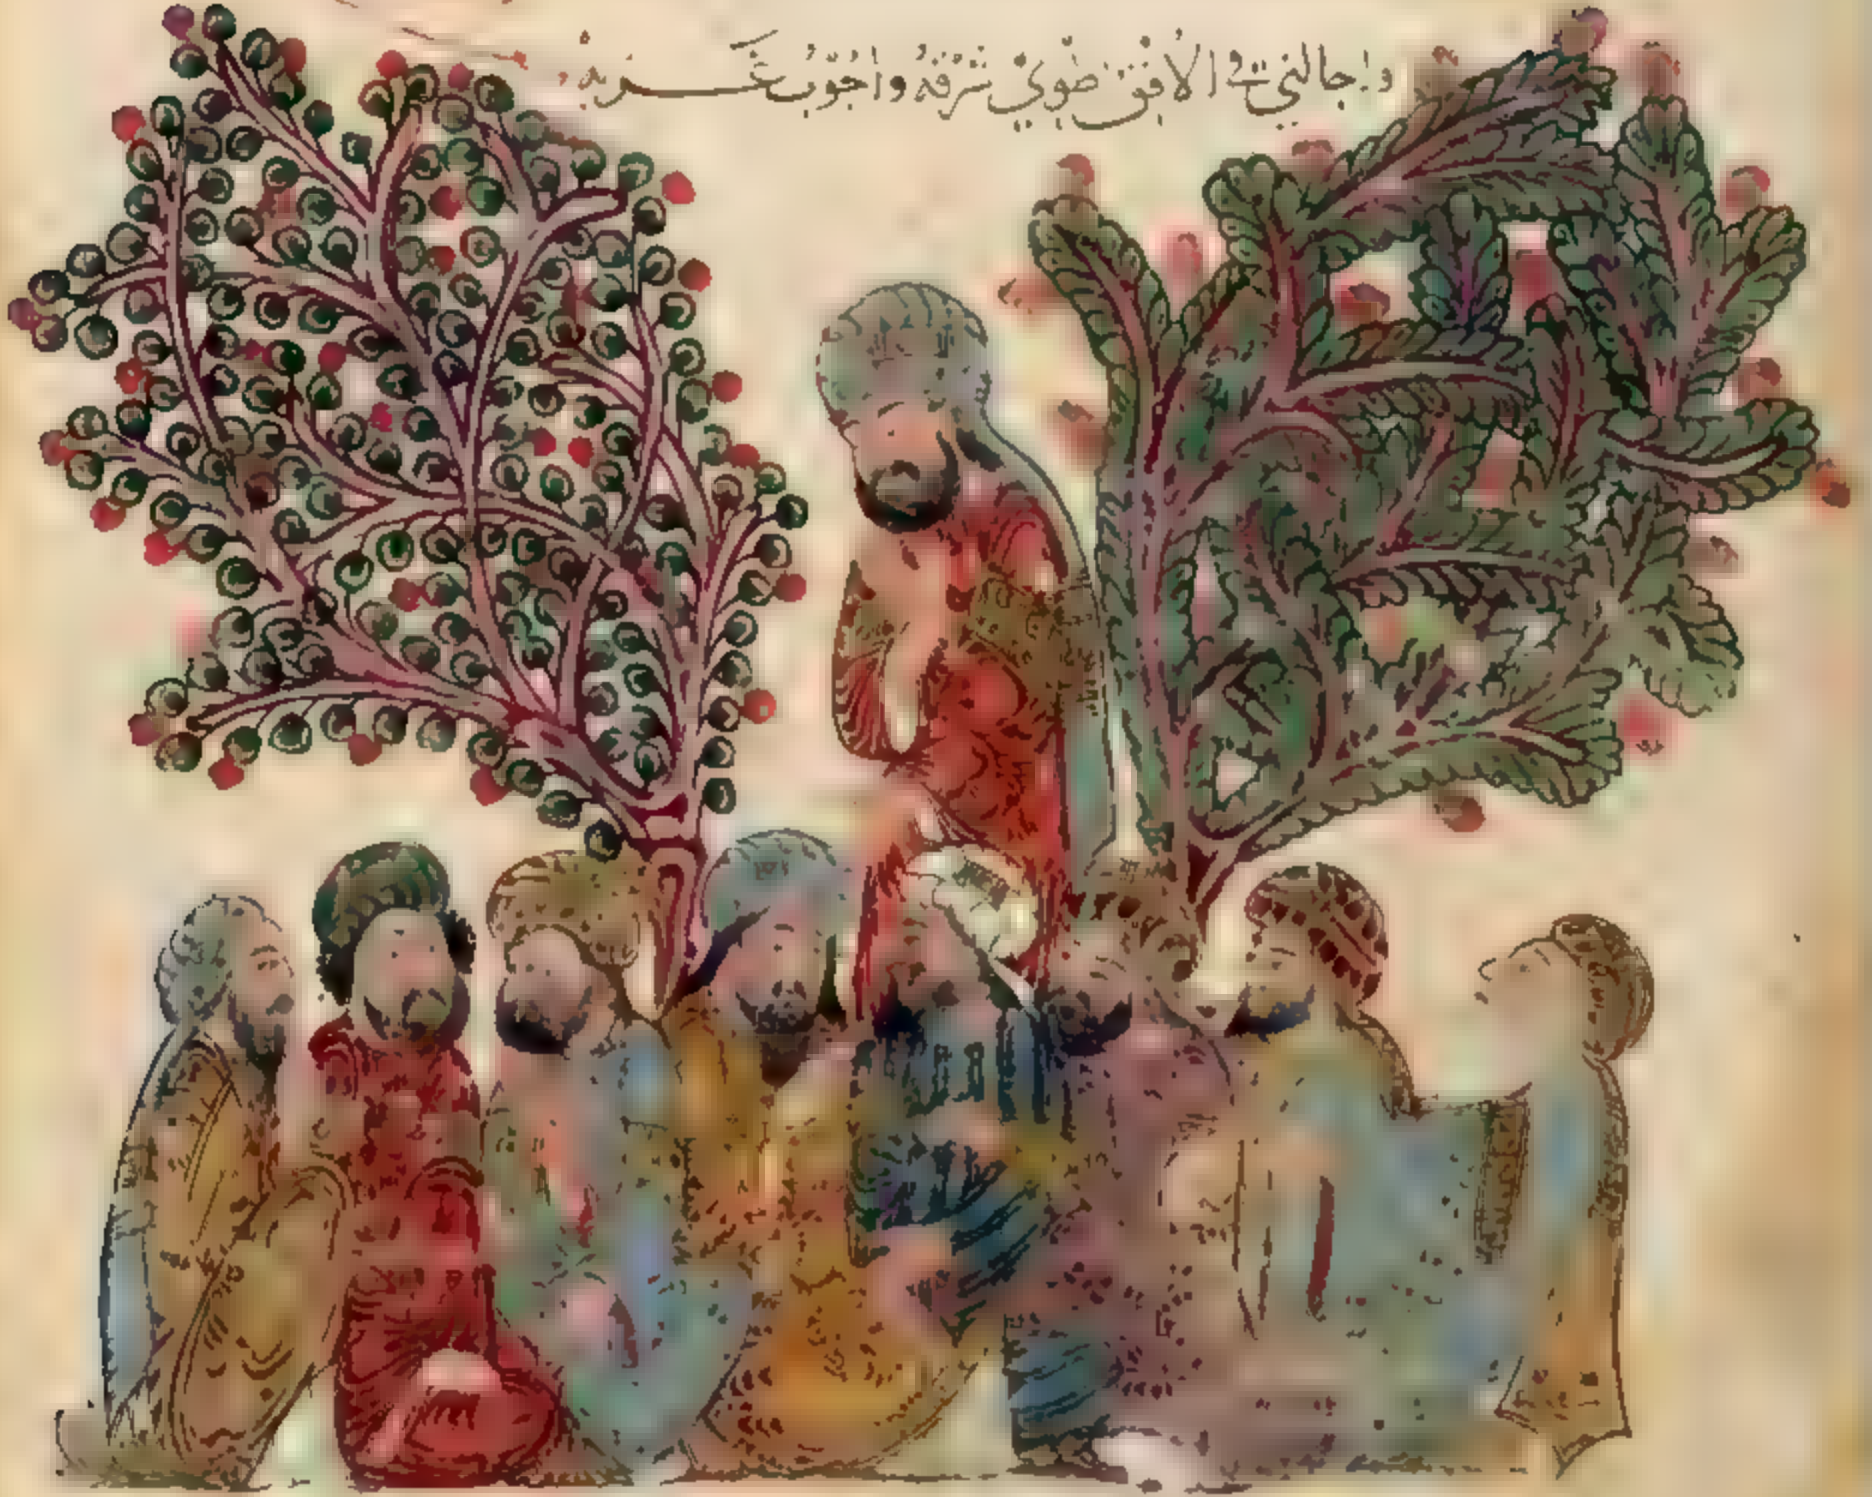 واجالني في الافق طوي شرقه واجوب غربه